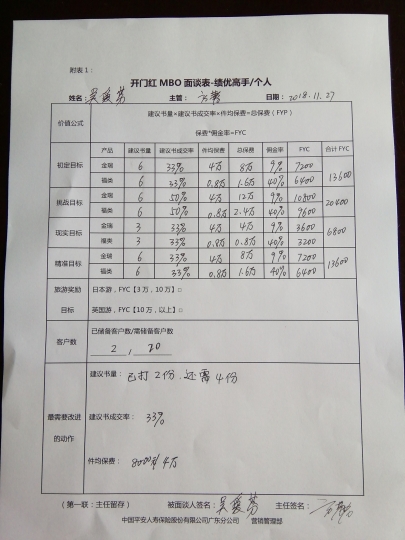 附表1:
开门红MBO面谈表-绩优高手/个人
姓名: 主管: 日期: 2018.11.27
价值公式 建议书量×建议书成交率×件均保费=总保费(FYP)
保费*佣金率=FYC
产品 建议书量 建议书成交率 件均保费 总保费 佣金率 FYC 合计FYC
初定目标 金瑞 6 33% 4万 8万 9% 7200 13600
福类 6 33% 0.8万 1.6万 40% 6400
挑战目标 金瑞 6 50% 4万 12万 9% 10800 20400
福类 6 50% 0.8万 2.4万 40% 9600
现实目标 金瑞 3 33% 4万 4万 9% 3600 6800
福类 3 33% 0.8万 0.8万 40% 3200
精准目标 金瑞 6 33% 4万 8万 9% 7200 13600
福类 6 33% 0.8万 1.6万 40% 6400
旅游奖励目标 日本游,FYC【3万,10万】□
英国游,FYC【10万,以上】□
客户数 已储备客户数/需储备客户数
2 , 20
最需要改进的动作 建议书量: 已打2份,还需4份
建议书成交率: 33%
件均保费: 8000 4万
(第一联:主任留存) 被面谈人签名: 主任签名:
中国平安人寿保险股份有限公司广东分公司 营销管理部